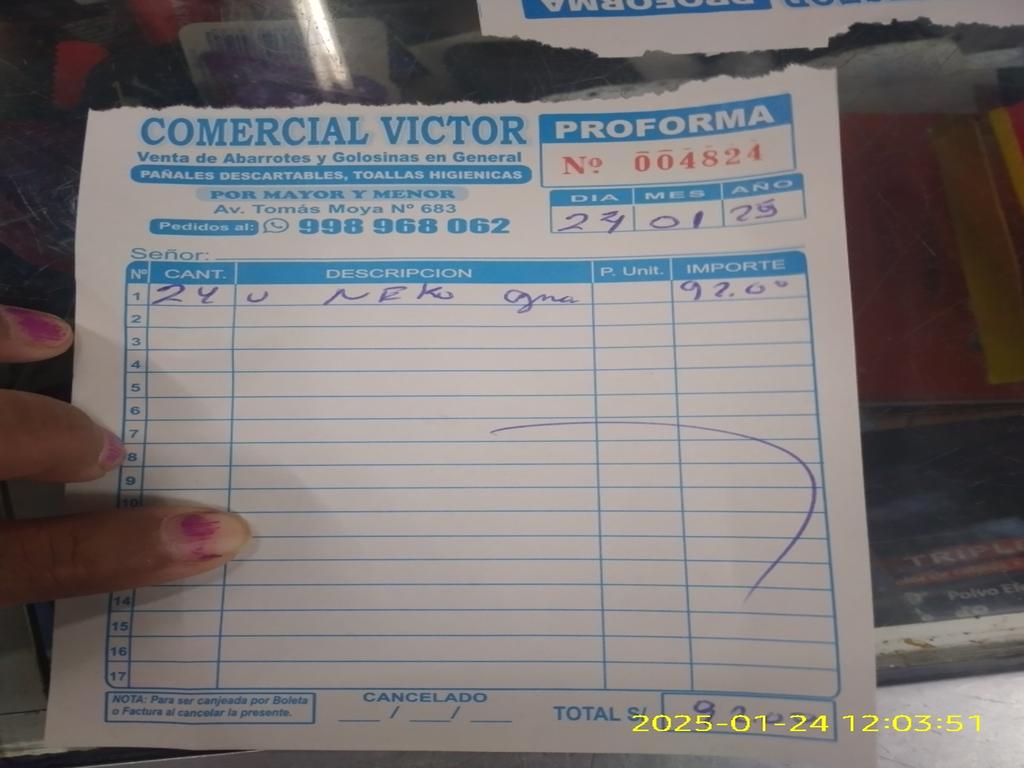 PROFORMA
COMERCIAL VICTOR
Venta de Abarrotes y Golosinas en General
PAÑALES DESCARTABLES, TOALLAS HIGIENICAS
POR MAYOR Y MENOR
Av. Tomás Moya Nº 683
Pedidos al: 998 968 062
PROFORMA
Nº 004824
DIA MES AÑO
24 01 25
Señor:
Nº CANT. DESCRIPCION P. Unit. IMPORTE
1 24 u NEKO 92.00
2
3
4
5
6
7
8
9
10
14
15
16
17
NOTA: Para ser canjeada por Boleta
o Factura al cancelar la presente.
CANCELADO
/ /
TOTAL S/.
2025-01-24 12:03:51
Polvo